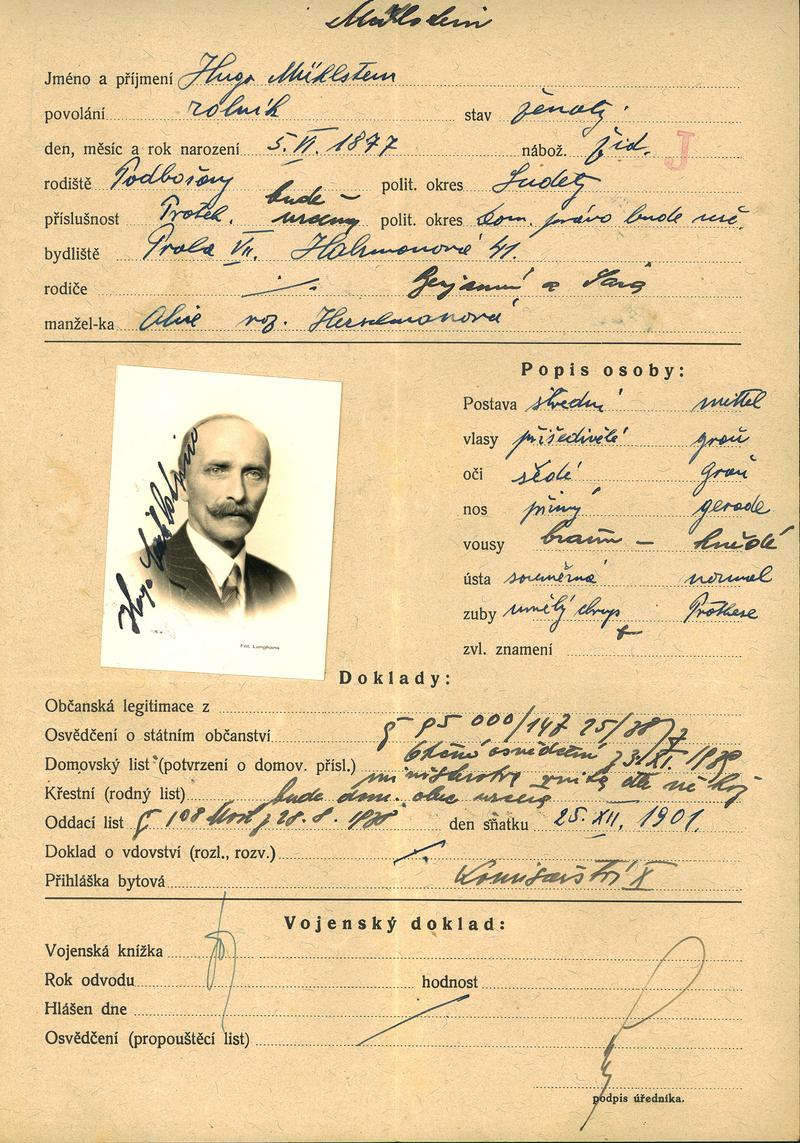 Mühlstein
Jméno a příjmení Hugo Mühlstein
povolání rolník stav ženatý.
den, měsíc a rok narození 5. VI. 1877 nábož. žid. J
rodiště Podbořany polit. okres Sudety
bude
příslušnost Protek. určeny polit. okres Dom. právo bude urč.
bydliště Praha VII. 41.
rodiče Benjamin a Sara
manžel-ka Olie roz.
Popis osoby:
Postava střední mittel
vlasy přišedivělé grau
oči šedé grau
nos přímý gerade
vousy braun – hnědé
ústa souměrná normal
zuby umělý chrup Prothese
zvl. znamení
Hugo Mühlstein
Fot. Langhans
Doklady:
Občanská legitimace z
Osvědčení o státním občanství
Domovský list (potvrzení o domov. přísl.)
Křestní (rodný list) bude dom. obec určena
Oddací list den sňatku 25. XII. 1901.
Doklad o vdovství (rozl., rozv.)
Přihláška bytová Komisařství X
Vojenský doklad:
Vojenská knížka
Rok odvodu hodnost
Hlášen dne
Osvědčení (propouštěcí list)
podpis úředníka.